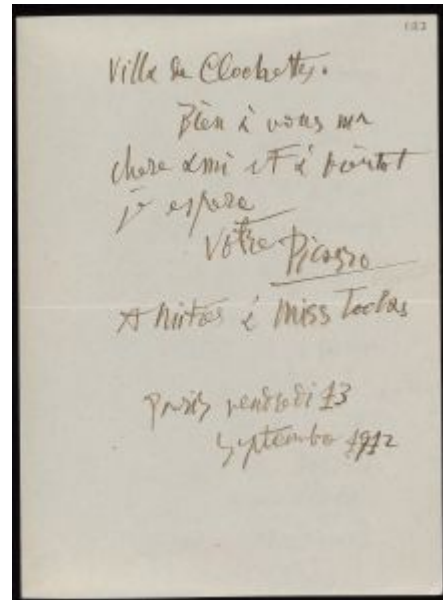 Villa de Clochettes.
Bien à vous ma
chere ami et à bientot
je espere
Votre Picasso
Amities à Miss Toclas
Paris vendredi 13
septembre 1912